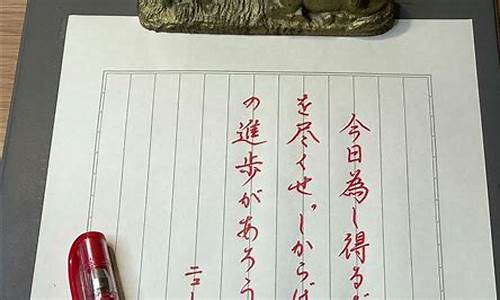 今日為し得るだ
を尽くせ。しからば
の進歩があろう
ニュー